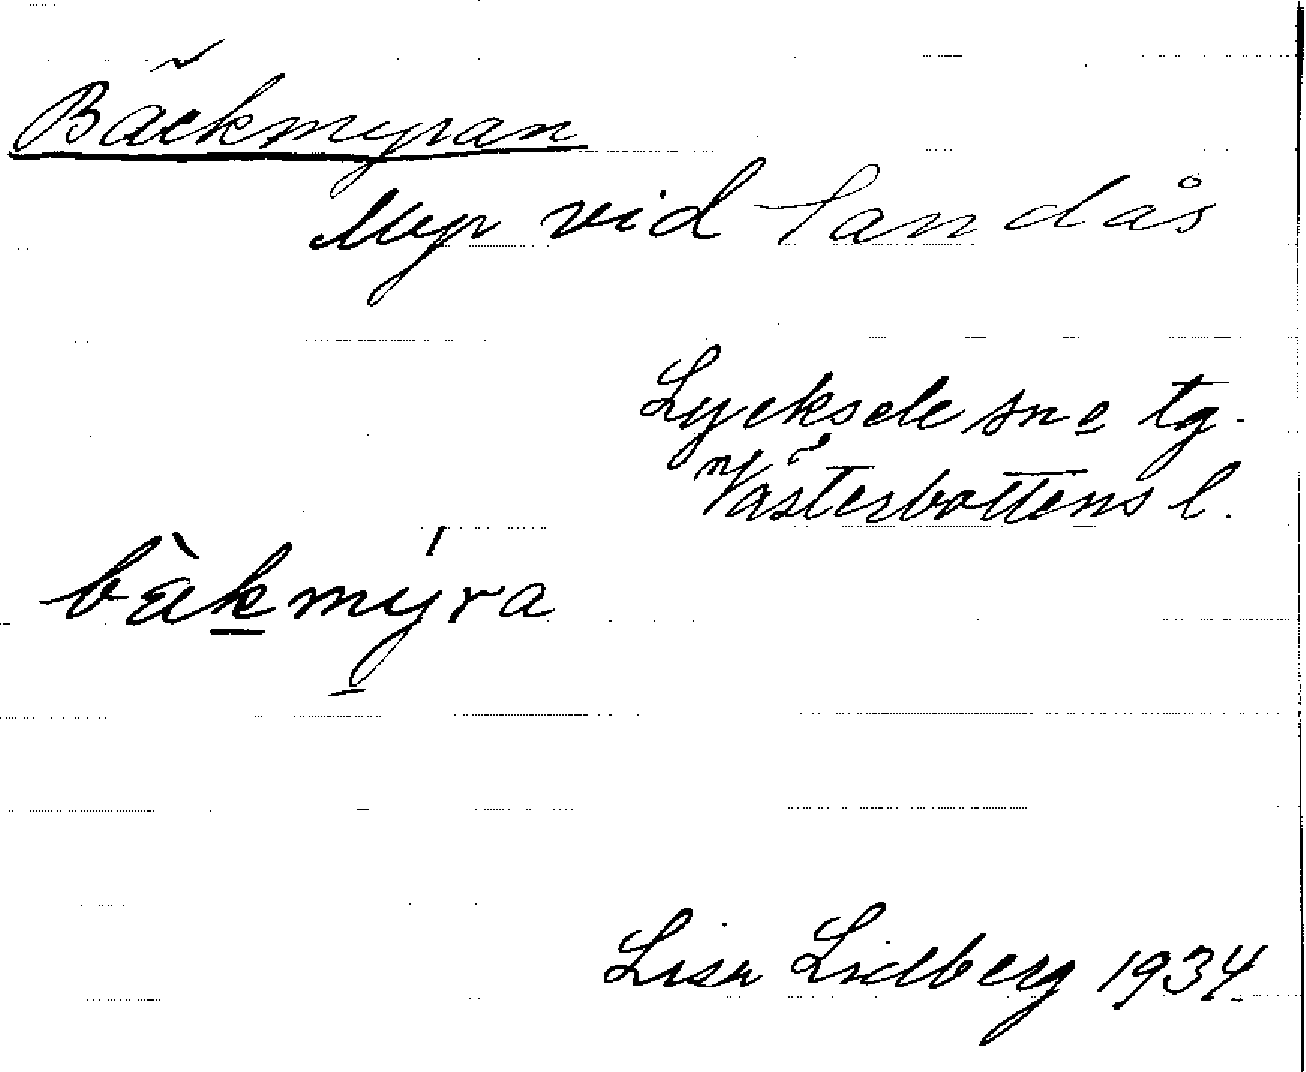 Bäckmyran
Myr vid Sandås
Lycksele sn o tg.
Västerbottens l.
bàkmýra
Lisa Lidberg 1934